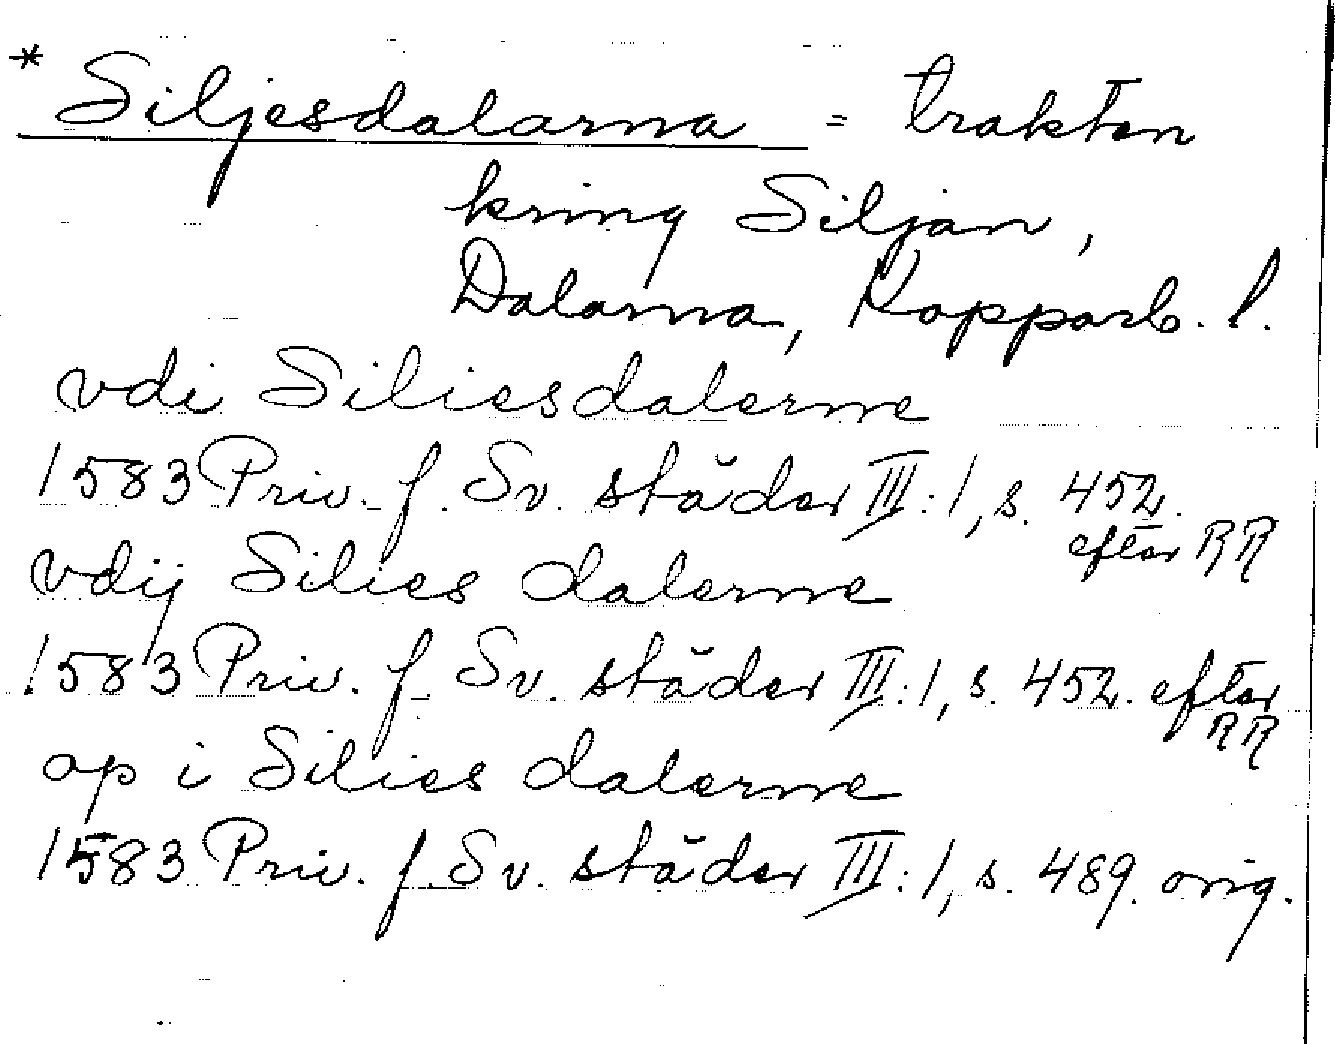 * Siljesdalarna = trakten
kring Siljan,
Dalarna, Kopparb. l.
vdi Siliesdalerne
1583 Priv. f. Sv. städer III:1, s. 452.
efter RR
vdij Silies dalerne
1583 Priv. f. Sv. städer III:1, s. 452. efter
RR
op i Silies dalerne
1583 Priv. f. Sv. städer III:1, s. 489. orig.